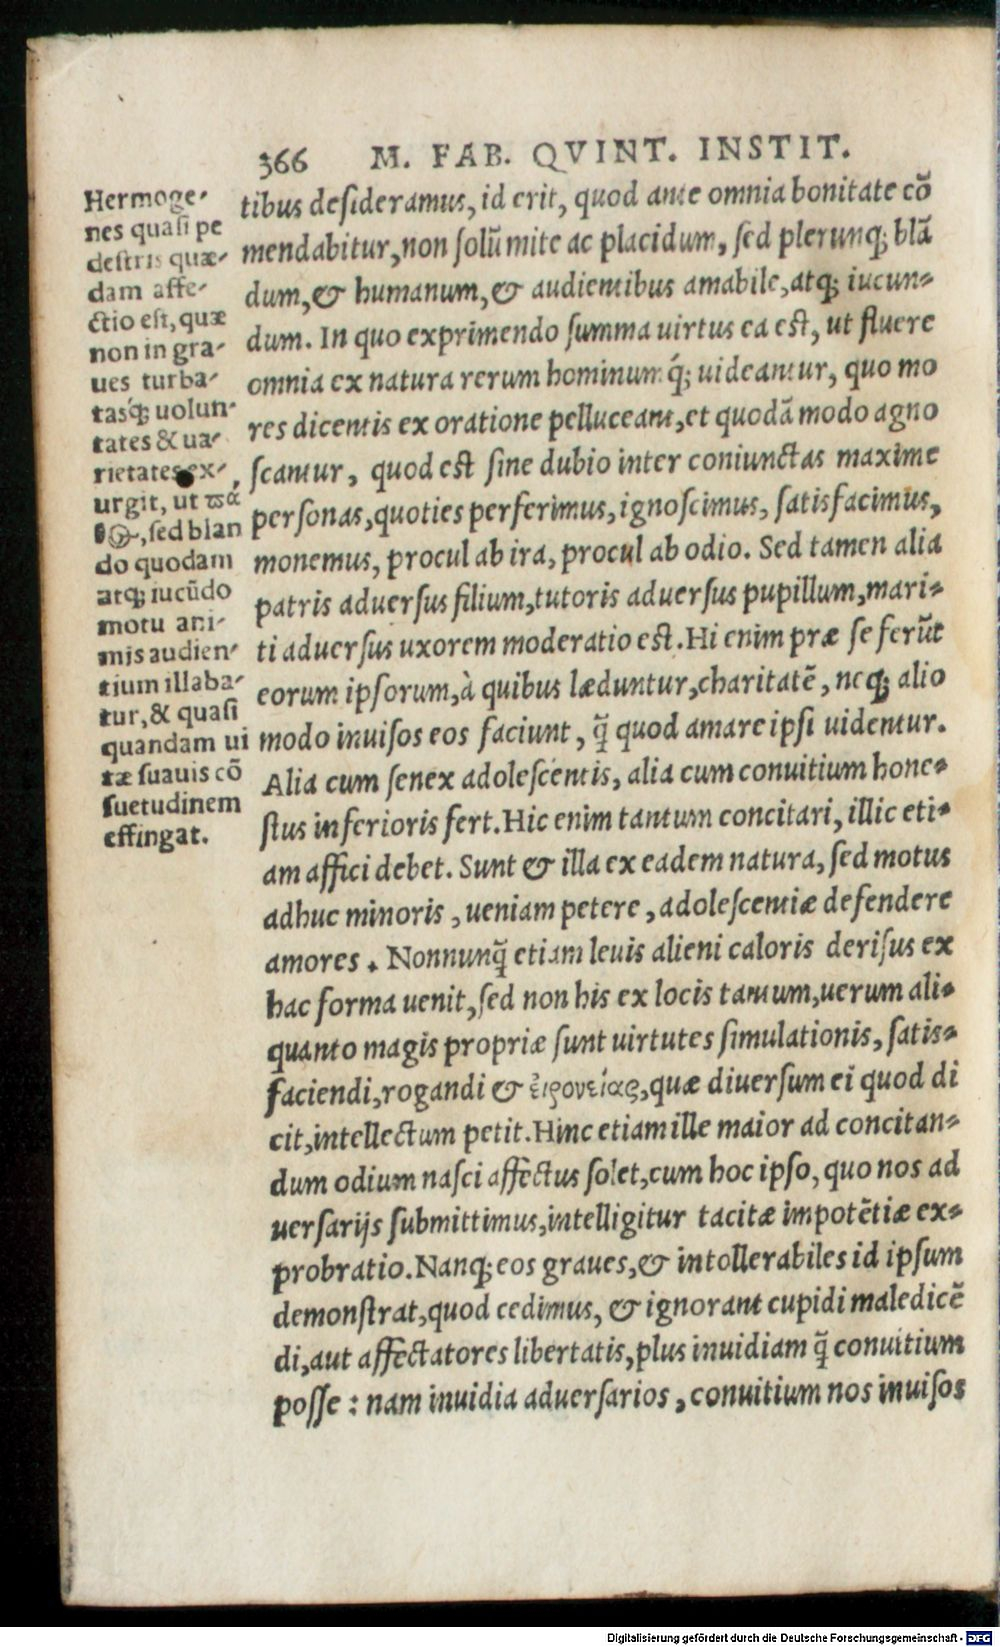 366 M. FAB. QVINT. INSTIT.
Hermoge-
nes quasi pe
destris quæ-
dam affe-
ctio est, quæ
non in gra-
ues turba-
tasq́; uolun-
tates & ua-
rietates ex-
urgit, ut πά
θ&, sed blan
do quodam
atq; iucūdo
motu ani-
mis audien-
tium illaba-
tur, & quasi
quandam ui
tæ suauis cō
suetudinem
effingat.
tibus desideramus, id erit, quod ante omnia bonitate cō
mendabitur, non solū mite ac placidum, sed plerunq; blā
dum, & humanum, & audientibus amabile, atq; iucun-
dum. In quo exprimendo summa uirtus ea est, ut fluere
omnia ex natura rerum hominumq́; uideantur, quo mo
res dicentis ex oratione pelluceant, et quodā modo agno
scantur, quod est sine dubio inter coniunctas maxime
personas, quoties perferimus, ignoscimus, satisfacimus,
monemus, procul ab ira, procul ab odio. Sed tamen alia
patris aduersus filium, tutoris aduersus pupillum, mari-
ti aduersus uxorem moderatio est. Hi enim præ se ferūt
eorum ipsorum, à quibus læduntur, charitatē, neq; alio
modo inuisos eos faciunt, q̄ quod amare ipsi uidentur.
Alia cum senex adolescentis, alia cum conuitium hone-
stus inferioris fert. Hic enim tantum concitari, illic eti-
am affici debet. Sunt & illa ex eadem natura, sed motus
adhuc minoris, ueniam petere, adolescentiæ defendere
amores. Nonnunq̄ etiam leuis alieni caloris derisus ex
hac forma uenit, sed non his ex locis tantum, uerum ali-
quanto magis propriæ sunt uirtutes simulationis, satis-
faciendi, rogandi & ἐιρονείας, quæ diuersum ei quod di
cit, intellectum petit. Hinc etiam ille maior ad concitan-
dum odium nasci affectus solet, cum hoc ipso, quo nos ad
uersarijs submittimus, intelligitur tacitæ impotētiæ ex-
probratio. Nanq; eos graues, & intollerabiles id ipsum
demonstrat, quod cedimus, & ignorant cupidi maledicē
di, aut affectatores libertatis, plus inuidiam q̄ conuitium
posse: nam inuidia aduersarios, conuitium nos inuisos
Digitalisierung gefördert durch die Deutsche Forschungsgemeinschaft - DFG